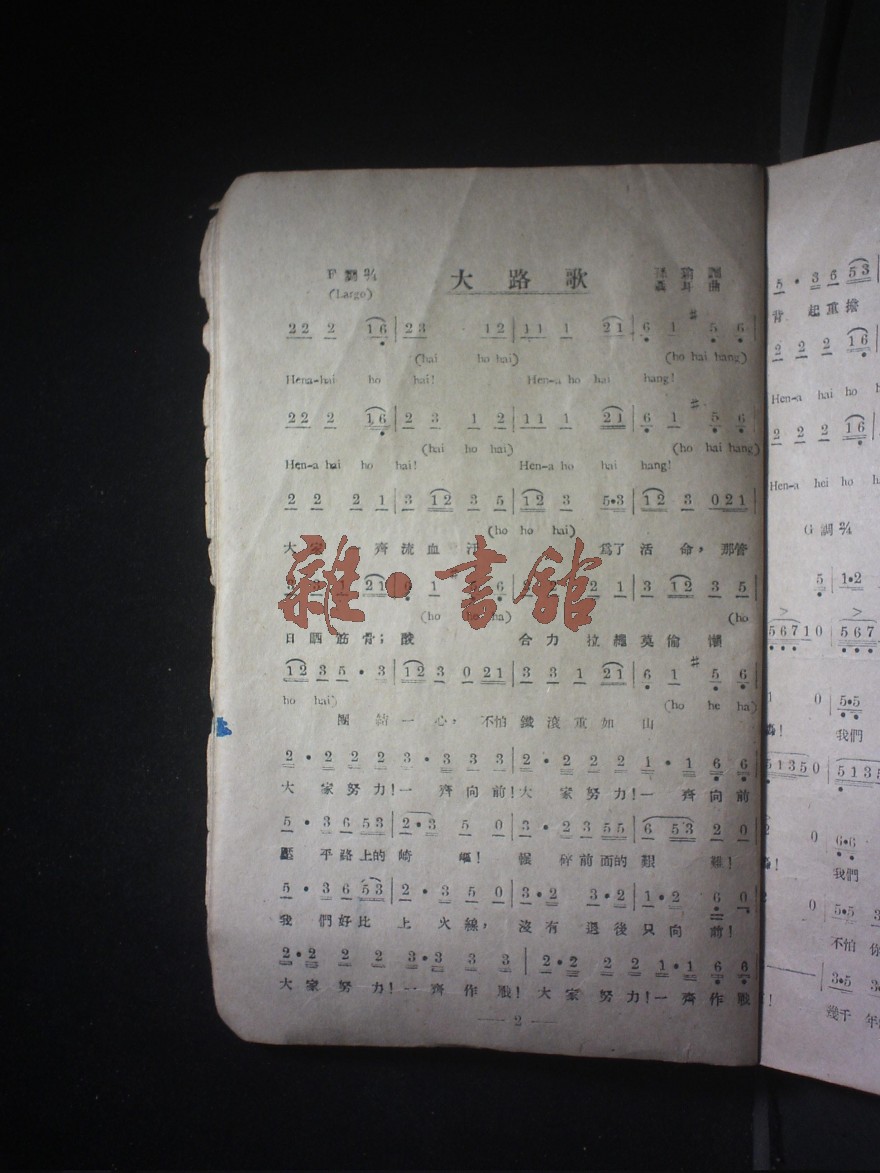 F 調 2/4
大路歌
孫瑜 詞
(Largo)
聶耳 曲
22 2 16 | 23 12 | 11 1 21 | 6 1 #5 6
(hai ho hai) (ho hai hang)
Hena-hai ho hai! Hen-a ho hai hang!
22 2 16 | 2 3 1 2 | 11 1 21 | 6 1 #5 6
(hai ho hai) (ho hai hang)
Hen-a hai ho hai! Hen-a ho hai hang!
2 2 2 1 | 3 12 3 5 | 12 3 5•3 | 12 3 021
(ho ho hai)
大 一齊流血 爲了活命，那管
21 | 6 1 6 2 1 | 3 12 3 5
(ho ha) (ho
日晒筋骨；酸 合力拉繩莫偷懶
12 3 5 • 3 | 12 3 0 21 | 3 3 1 21 | 6 1 #5 6
ho hai) (ho he ha)
團結一心，不怕鐵滾重如山
2 • 2 2 2 3 • 3 3 3 | 2 • 2 2 2 1 • 1 6 6
大家努力！一齊向前！大家努力！一齊向前
5 • 3 6 53 | 2•3 5 0 | 3 • 2 3 55 | 6 53 2 0
壓平路上的崎嶇！碾碎前面的艱難！
5 • 3 6 53 | 2 • 3 5 0 | 3•2 3•2 | 1•2 6 0
我們好比上火線，沒有退後只向前！
2•2 2 2 3•3 3 3 | 2•2 2 2 1•1 6 6
大家努力！一齊作戰！大家努力！一齊作戰
— 2 —
雜•書館
5 • 3 5 53
背 起重擔
2 2 2 16
Hen-a hai ho h
2 2 2 16
Hen-a hei ho h
G 調 2/4
5 | 1•2
56710 | 567
0 | 5•5
我們
51350 | 5135
0 | 6•6
我們
0 | 5•5 3
不怕 你
3•5 3•
幾千 年